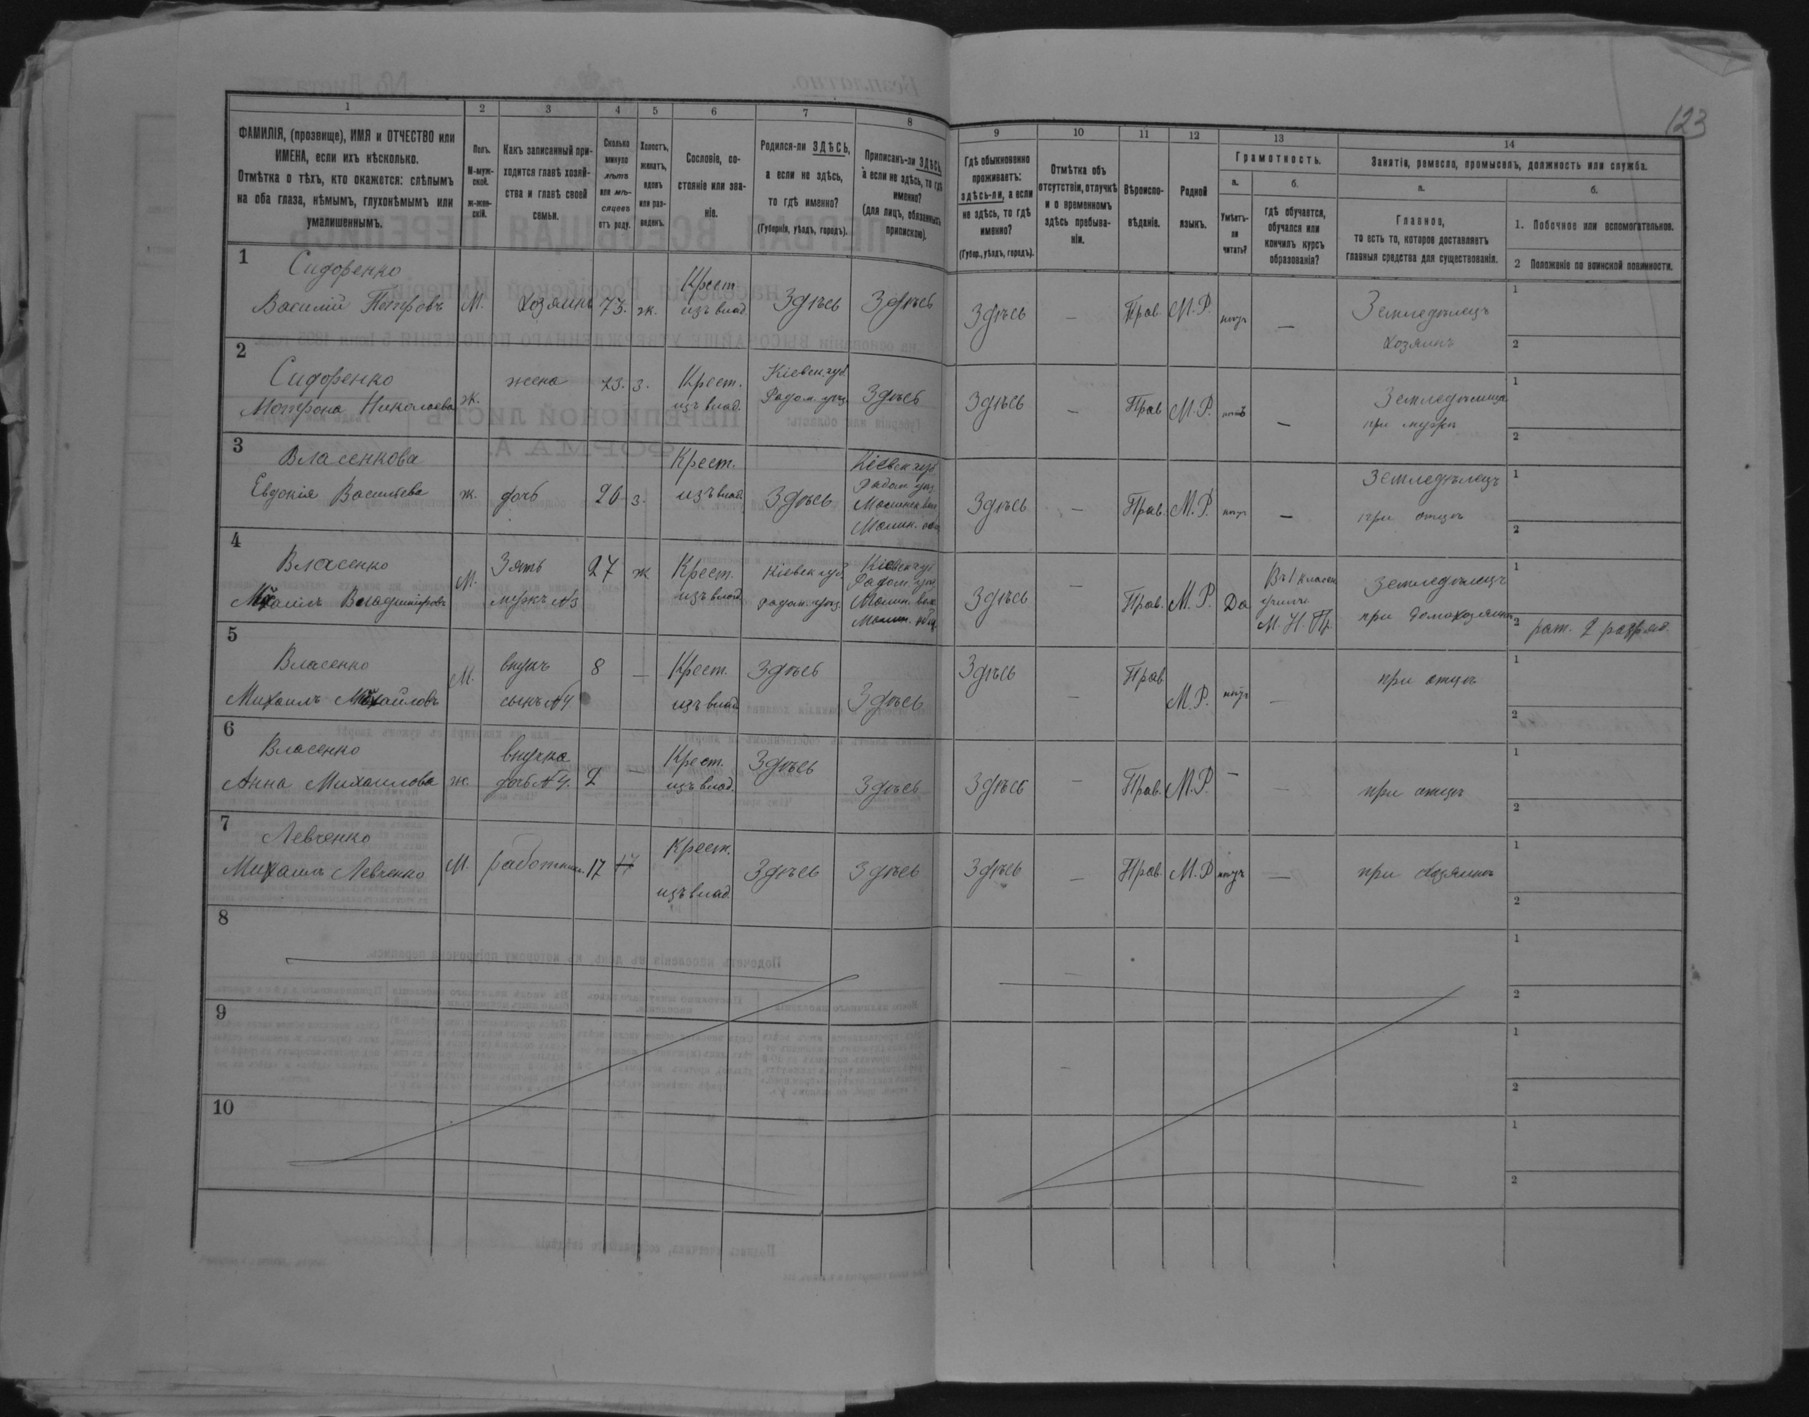 123
1
2
3
4
5
6
7
8
9
10
11
12
13
14
ФАМИЛІЯ, (прозвище), ИМЯ и ОТЧЕСТВО или
ИМЕНА, если ихъ нѣсколько.
Отмѣтка о тѣхъ, кто окажется: слѣпымъ
на оба глаза, нѣмымъ, глухонѣмымъ или
умалишеннымъ.
Полъ.
М-муж-
ской.
ж-жен-
скій.
Какъ записанный при-
ходится главѣ хозяй-
ства и главѣ своей
семьи.
Сколько
минуло
лѣтъ
или мѣ-
сяцевъ
отъ роду.
Холостъ,
женатъ,
вдовъ
или раз-
веденъ.
Сословіе, со-
стояніе или зва-
ніе.
Родился-ли ЗДѢСЬ,
а если не здѣсь,
то гдѣ именно?
(Губернія, уѣздъ, городъ).
Приписанъ-ли ЗДѢСЬ,
а если не здѣсь, то гдѣ
именно?
(для лицъ, обязанныхъ
припискою).
Гдѣ обыкновенно
проживаетъ:
здѣсь-ли, а если
не здѣсь, то гдѣ
именно?
(Губер., уѣздъ, городъ).
Отмѣтка объ
отсутствіи, отлучкѣ
и о временномъ
здѣсь пребыва-
ніи.
Вѣроиспо-
вѣданіе.
Родной
языкъ.
Грамотность.
а.
б.
Умѣетъ-
ли
читать?
гдѣ обучается,
обучался или
кончилъ курсъ
образованія?
Занятіе, ремесло, промыселъ, должность или служба.
а.
б.
Главное,
то есть то, которое доставляетъ
главныя средства для существованія.
1. Побочное или вспомогательное.
2 Положеніе по воинской повинности.
1
Сидоренко
Василій Петровъ
М.
хозяинъ
73.
ж.
Крест.
изъ влад.
Здѣсь
Здѣсь
Здѣсь
—
Прав.
М.Р.
нѣтъ
—
Земледѣлецъ
хозяинъ
1
2
2
Сидоренко
Матрона Николаева
ж.
жена
з.
Крест.
изъ влад.
Кіевск. губ.
Радом. уѣз.
Здѣсь
Здѣсь
—
Прав
М.Р.
нѣтъ
—
при мужѣ
1
2
3
Власенкова
Евдокія Васильева
ж.
дочь
26
з.
Крест.
изъ влад.
Здѣсь
Кіевск. губ.
Радом. уѣз.
Здѣсь
—
Прав.
М.Р.
нѣтъ
—
Земледѣлецъ
при отцѣ
1
2
4
Власенко
Михаилъ Владиміровъ
М.
Зять
мужъ №3
27
ж
Крест.
изъ влад.
Кіевск. губ.
Радом. уѣз.
Кіевск. губ.
Радом. уѣз.
Малин. вол.
Здѣсь
—
Прав.
М.Р.
Да
М. Н. Пр.
Земледѣлецъ
при домохозяинѣ
1
2
рат. 2 разряд.
5
Власенко
Михаилъ Михайловъ
М.
внукъ
сынъ №4
8
—
Крест.
изъ влад.
Здѣсь
Здѣсь
Здѣсь
—
Прав
М.Р.
нѣтъ
—
при отцѣ
1
2
6
Власенко
Анна Михайлова
ж.
внучка
дочь №4.
2
—
Крест.
изъ влад.
Здѣсь
Здѣсь
Здѣсь
—
Прав.
М.Р.
—
при отцѣ
1
2
7
Левченко
Михаилъ Левченко
М.
работник
17
17
Крест.
изъ влад.
Здѣсь
Здѣсь
Здѣсь
—
Прав.
М.Р
нѣтъ
—
при хозяинѣ
1
2
8
1
2
9
1
2
10
1
2